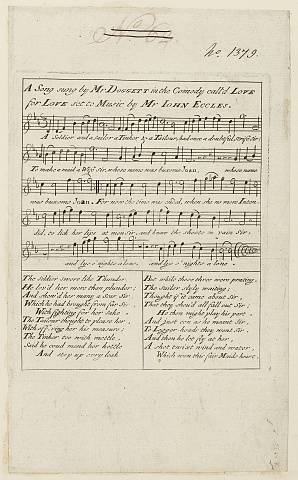 No. 1379.
A Song sung by Mr. DOGGETT in the Comedy call'd LOVE
for LOVE set to Music by Mr. IOHN ECCLES.
A Soldier and a Sailor a Tinker & a Tailour, had once a doubtful strife Sir
To make a maid a Wife Sir, whose name was buxome Joan, whose name
was buxome Joan. For now the time was ended, when she no more Inten
ded, to lick her lips at men Sir, and knaw the sheets in vain Sir,
and lye o'nights alone, and lye o'nights alone.
The Soldier swore like Thunder,
He lov'd her more then plunder;
And shew'd her many a scar Sir,
Which he had brought from far Sir,
With fighting for her sake.
The Tailour thought to please her,
With off'ring her his measure;
The Tinker too with mettle,
Said he coud mend her kettle
And stop up ev'ry leak
But while these three were prating,
The Sailor slyly waiting;
Thought if it came about Sir,
That they should all fall out Sir;
He then might play his part
And just e'en as he meant Sir,
To Logger-heads they went Sir,
And then he let fly at her,
A shot twixt wind and water,
Which won this fair Maids heart.